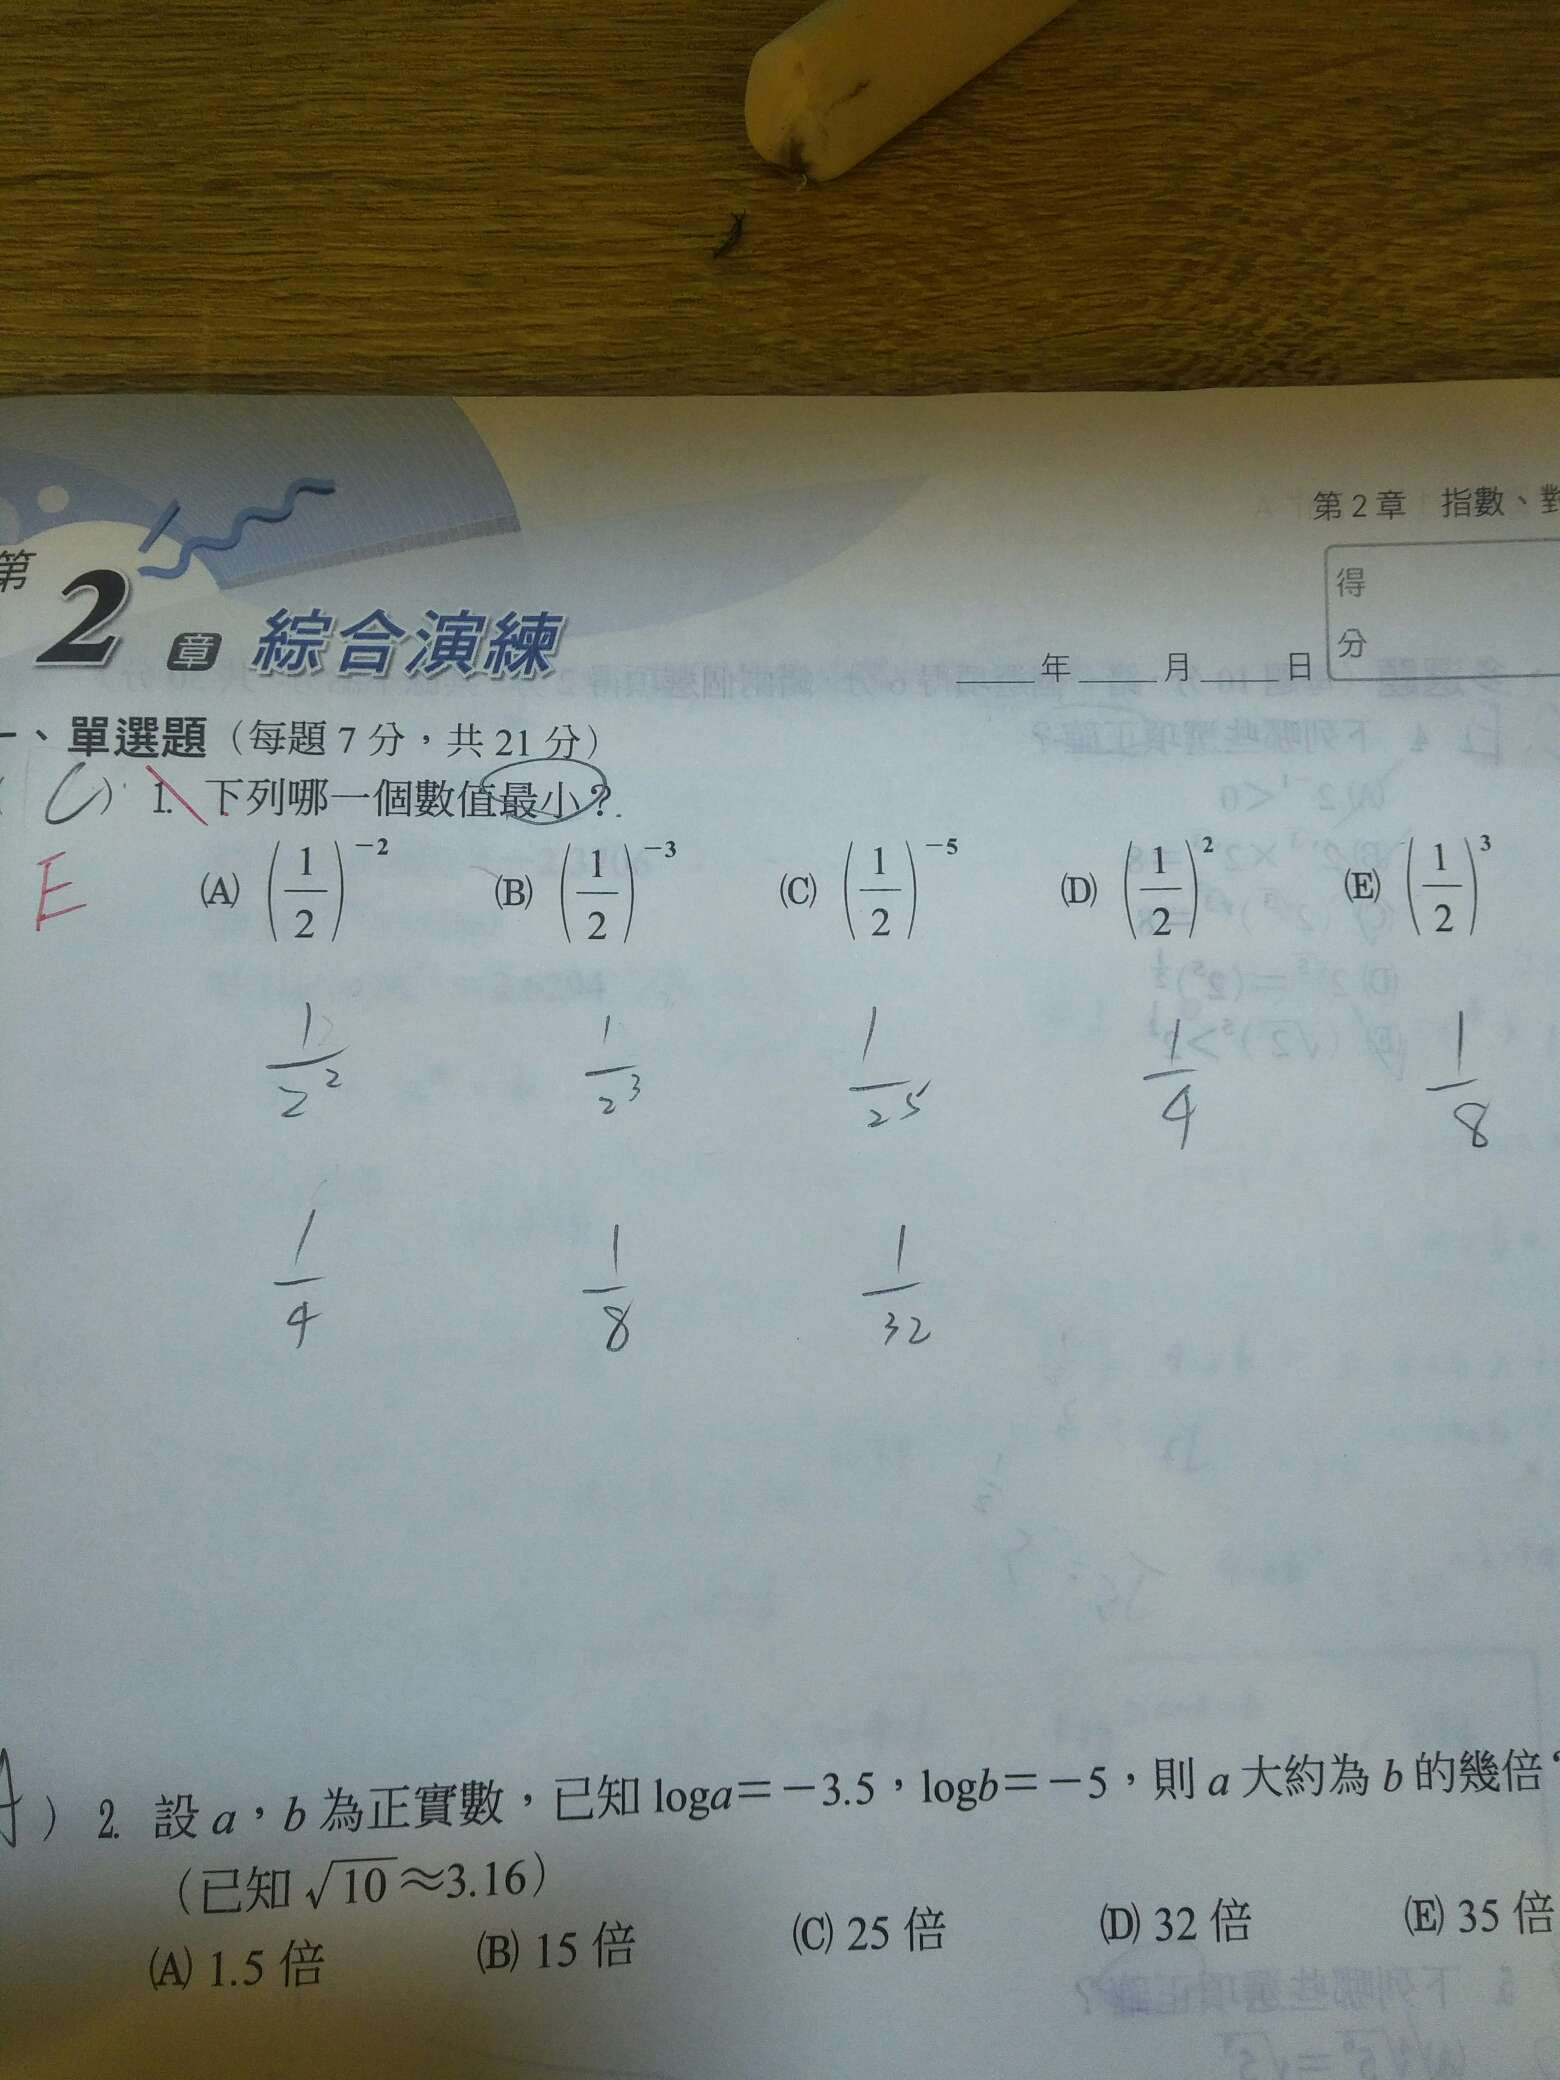 第2章 指數、
得分
第2章 綜合演練
____年____月____日
一、單選題（每題7分，共21分）
( C ) 1. 下列哪一個數值最小？
E
(A) (1/2)^-2 (B) (1/2)^-3 (C) (1/2)^-5 (D) (1/2)^2 (E) (1/2)^3
1/2^2 1/2^3 1/2^5 1/4 1/8
1/4 1/8 1/32
A ) 2. 設 a，b 為正實數，已知 loga=−3.5，logb=−5，則 a 大約為 b 的幾倍
（已知 √10≈3.16）
(A) 1.5 倍 (B) 15 倍 (C) 25 倍 (D) 32 倍 (E) 35 倍